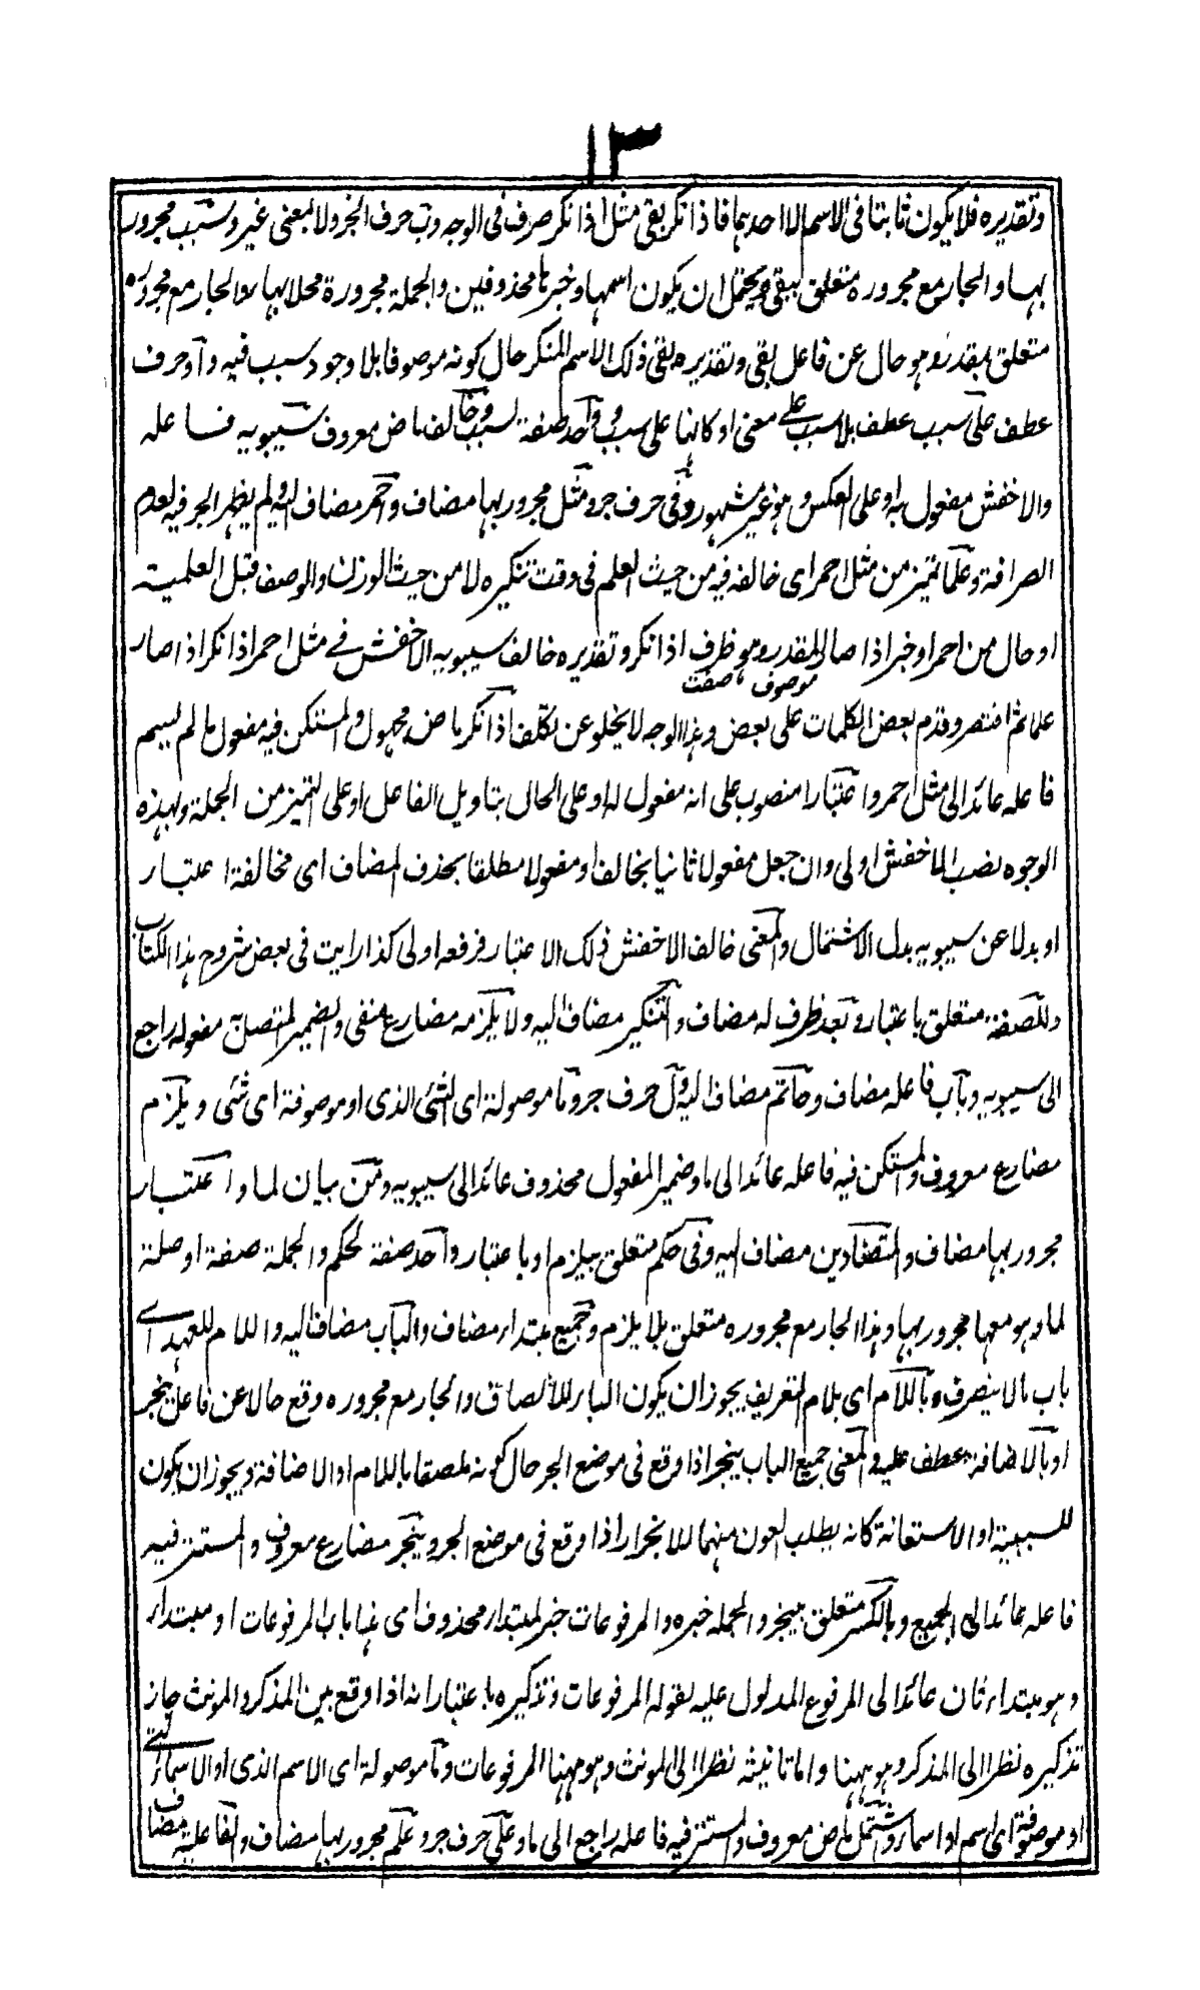 ١٣
وتقديره فلا يكون ثابتا فى الاسم الا احدهما فاذا نكر بقى مثل اذا نكر صرف فى الوجه وب حرف الجر ولا بمعنى غير وسبب مجرور
بها والجار مع مجروره متعلق ببقى ويحتمل ان يكون اسمها وخبرها محذوفين والجملة مجرورة محلا بها والجار مع مجروره
متعلق بمقدر وهو حال عن فاعل بقى وتقديره بقى ذلك الاسم المنكر حال كونه موصوفا بلا وجود سبب فيه واو حرف
عطف على سبب عطف بلا سبب على معنى او كائنا على سبب و واحد صفة لسبب وخالف ماض معروف سيبويه فاعله
والاخفش مفعول به او على العكس وهو غير مشهور وفى حرف جر ومثل مجرور بها مضاف واحمر مضاف اليه ولم يظهر الجر فيه لعدم
الصرافة وعلما تميز من مثل احمر اى خالفه فيه من حيث العلم فى وقت تنكيره لا من حيث الوزن والوصف قبل العلمية
او حال من احمر او خبر اذا صار المقدر وهو ظرف اذا نكر وتقديره خالف سيبويه الاخفش فے مثل احمر اذا نكر اذا صار
موصوف صفت
علما ثم اختصر وقدم بعض الكلمات على بعض وهذا الوجه لا يخلو عن تكلف اذا نكر ماض مجهول والمستكن فيه مفعول ما لم يسم
فاعله عائد الى مثل احمر واعتبارا منصوب على انه مفعول له او على الحال بتاويل الفاعل او على التميز من الجملة وبهذه
الوجوه نصب الاخفش اولى وان جعل مفعولا ثانيا بخالف او مفعولا مطلقا بحذف المضاف اى مخالفة اعتبار
او بدلا عن سيبويه بدل الاشتمال والمعنى خالف الاخفش ذلك الاعتبار فرفعه اولى كذا رايت فى بعض شروح هذا الكتاب
وللصفة متعلق باعتبار وبعد ظرف له مضاف والتنكير مضاف اليه ولا يلزمه مضارع منفى والضمير المتصل مفعوله راجع
الى سيبويه وباب فاعله مضاف وحاتم مضاف اليه ول حرف جر وما موصولة اى الشئ الذى او موصوفة اى شئ ويلزم
مضارع معروف والمستكن فيه فاعله عائد الى ما وضمير المفعول محذوف عائد الى سيبويه ومن بيان لما واعتبار
مجرور بها مضاف والمتضادين مضاف اليه وفى حكم متعلق بيلزم او باعتبار واحد صفة لحكم والجملة صفة او صلة
لما وهو معها مجرور بها وهذا الجار مع مجروره متعلق بلا يلزم وجميع مبتداء مضاف والباب مضاف اليه واللام للعهد اے
باب ما لا ينصرف وباللام اى بلام التعريف يجوز ان يكون الباء للالصاق والجار مع مجروره وقع حالا عن فاعل ينجر
او بالاضافة عطف عليه والمعنى جميع الباب ينجر اذا وقع فى موضع الجر حال كونه ملصقا باللام او الاضافة ويجوز ان يكون
للسببية او الاستعانة كانه يطلب العون منهما للانجرار اذا وقع فى موضع الجر وينجر مضارع معروف والمستتر فيه
فاعله عائد الى الجميع وبالكسر متعلق بينجر والجملة خبره والمرفوعات خبر لمبتداء محذوف اى هذا باب المرفوعات او مبتداء
وهو مبتداء ثان عائد الى المرفوع المدلول عليه بقوله المرفوعات وتذكيره باعتبار انه اذا وقع بين المذكر والمونث جاز
تذكيره نظرا الى المذكر وهو ههنا واما تانيثه نظرا الى المونث وهو ههنا المرفوعات وما موصولة اى الاسم الذى او الاسماء التے
او موصوفة اى اسم او اسماء واشتمل ماض معروف والمستتر فيه فاعله راجع الى ما وعلى حرف جر وعلم مجرور بها مضاف والفاعلية مضاف